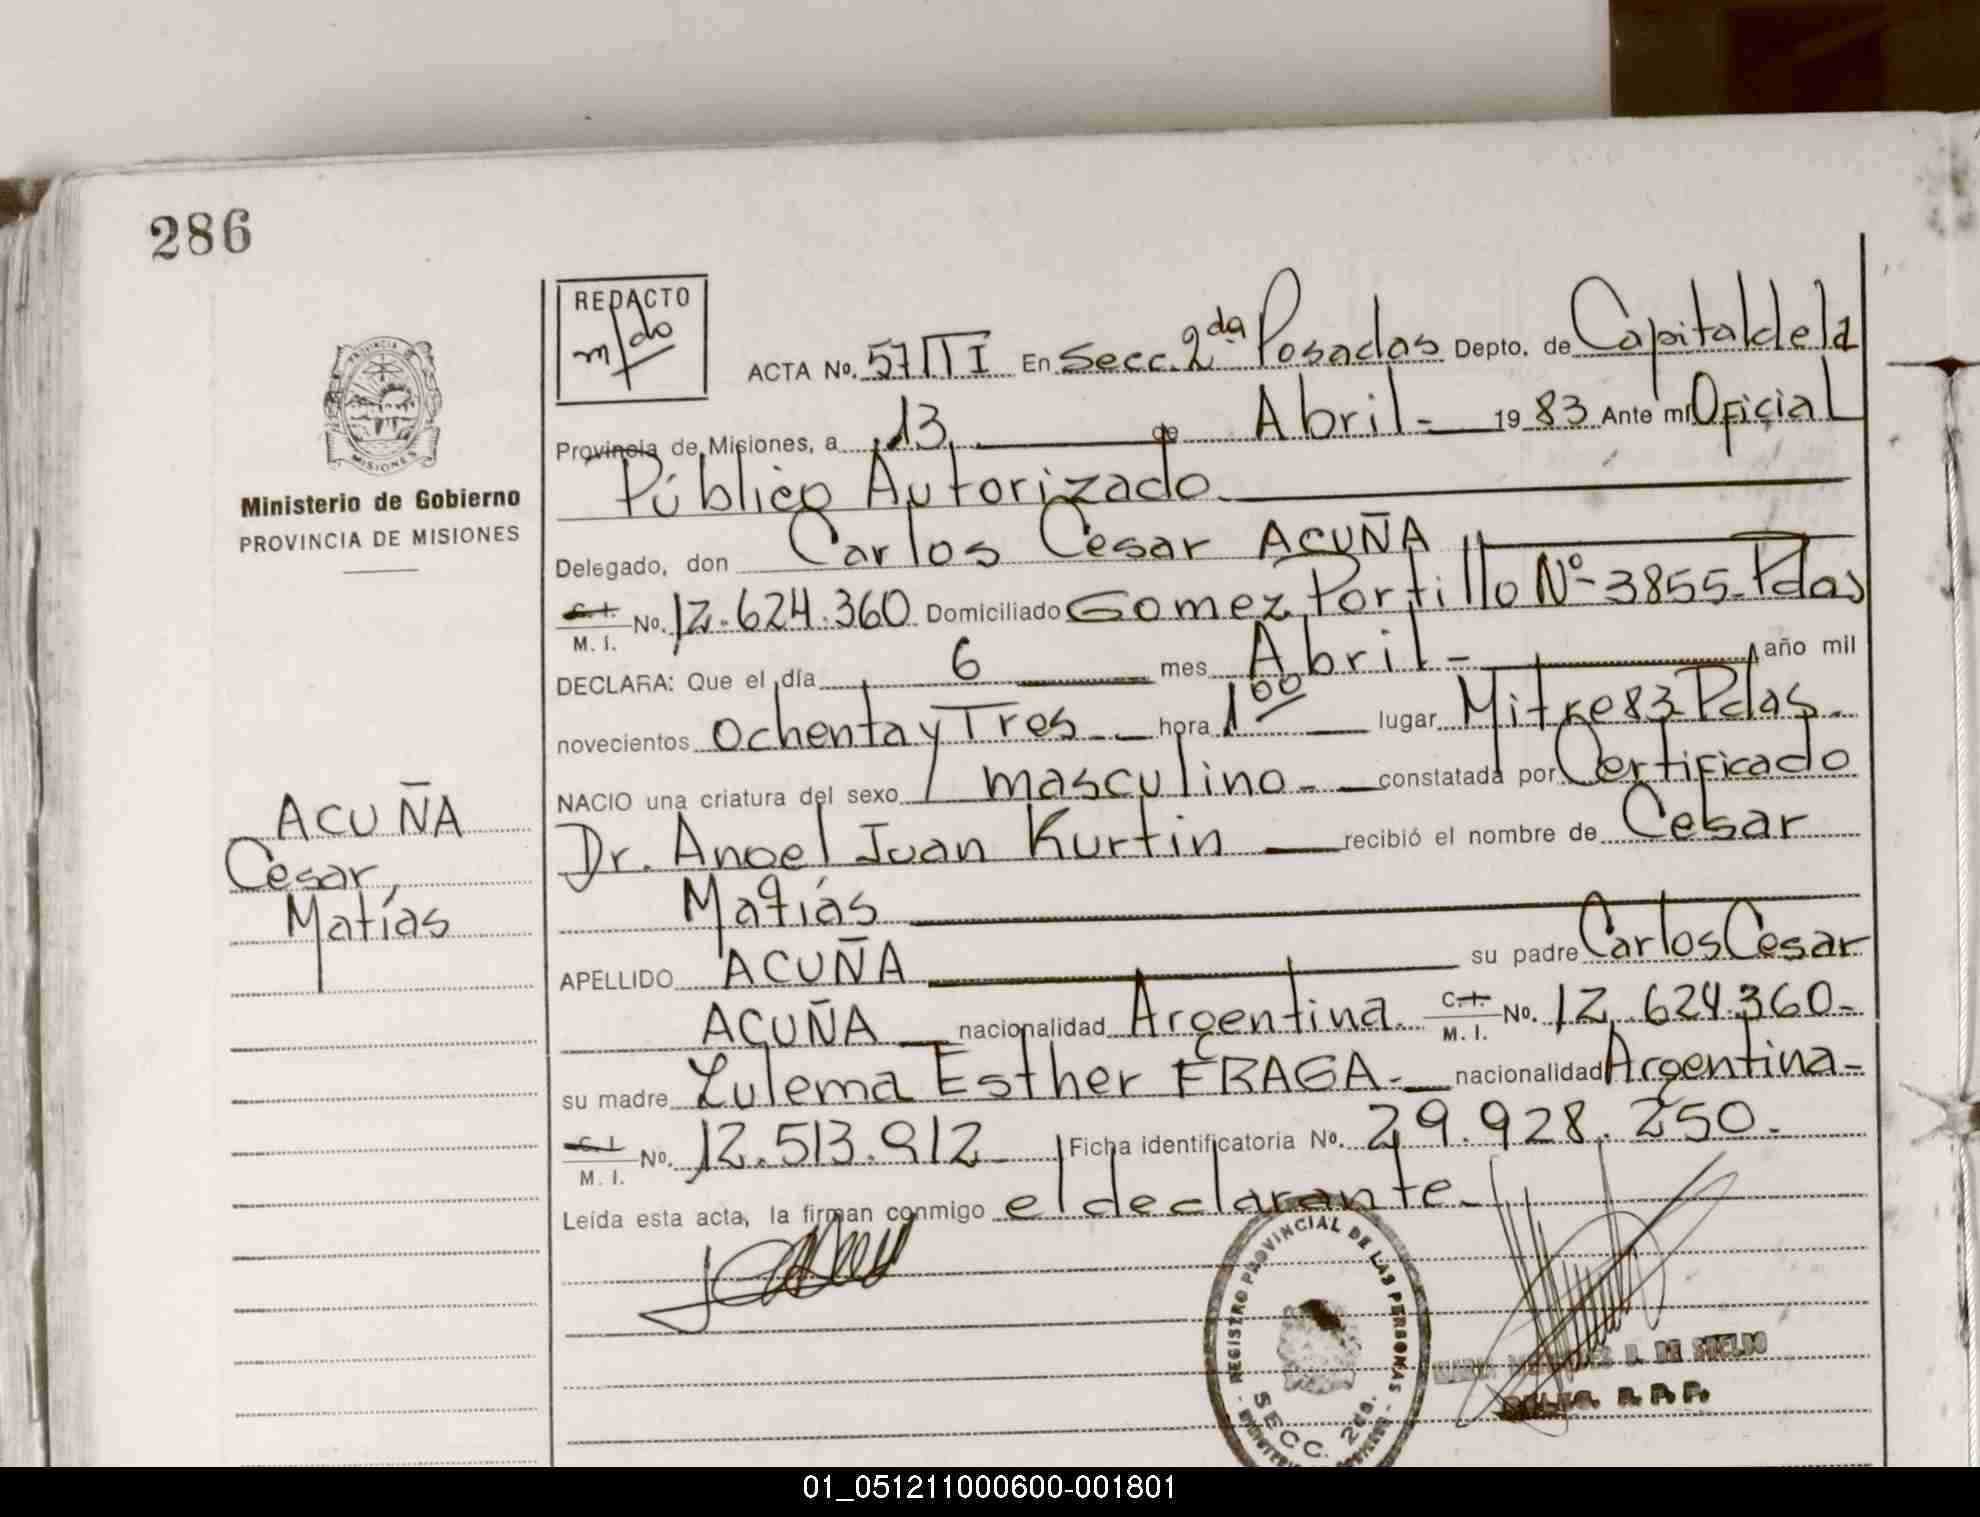 286
REDACTO
m/do
ACTA No. 57/TI En Secc. 2da Posadas Depto. de Capital de la
Provincia de Misiones, a 13 de Abril - 1983 Ante mi Oficial
Público Autorizado
PROVINCIA DE
MISIONES
Ministerio de Gobierno
PROVINCIA DE MISIONES
Delegado, don Carlos Cesar ACUÑA
C.I. M. I. No. 12.624.360 Domiciliado Gomez Portillo Nº 3855 - Pdas
DECLARA: Que el día 6 mes Abril - año mil
novecientos ochenta y Tres - hora 1 00 lugar Mitre 83 Pdas.
NACIO una criatura del sexo masculino - constatada por Certificado
Dr. Angel Juan Kurtin recibió el nombre de Cesar
Matías
ACUÑA
Cesar,
Matías
APELLIDO ACUÑA su padre Carlos Cesar
ACUÑA nacionalidad Argentina. C.I. M. I. No. 12.624.360 -
su madre Zulema Esther FRAGA - nacionalidad Argentina -
C.I. M. I. No. 12.513.912 Ficha identificatoria No. 29.928.250.
Leída esta acta, la firman conmigo el declarante -
REGISTRO PROVINCIAL DE LAS PERSONAS
SECC. 2da.
DE SUELDO
DELEG. R. P. P.
01_051211000600-001801